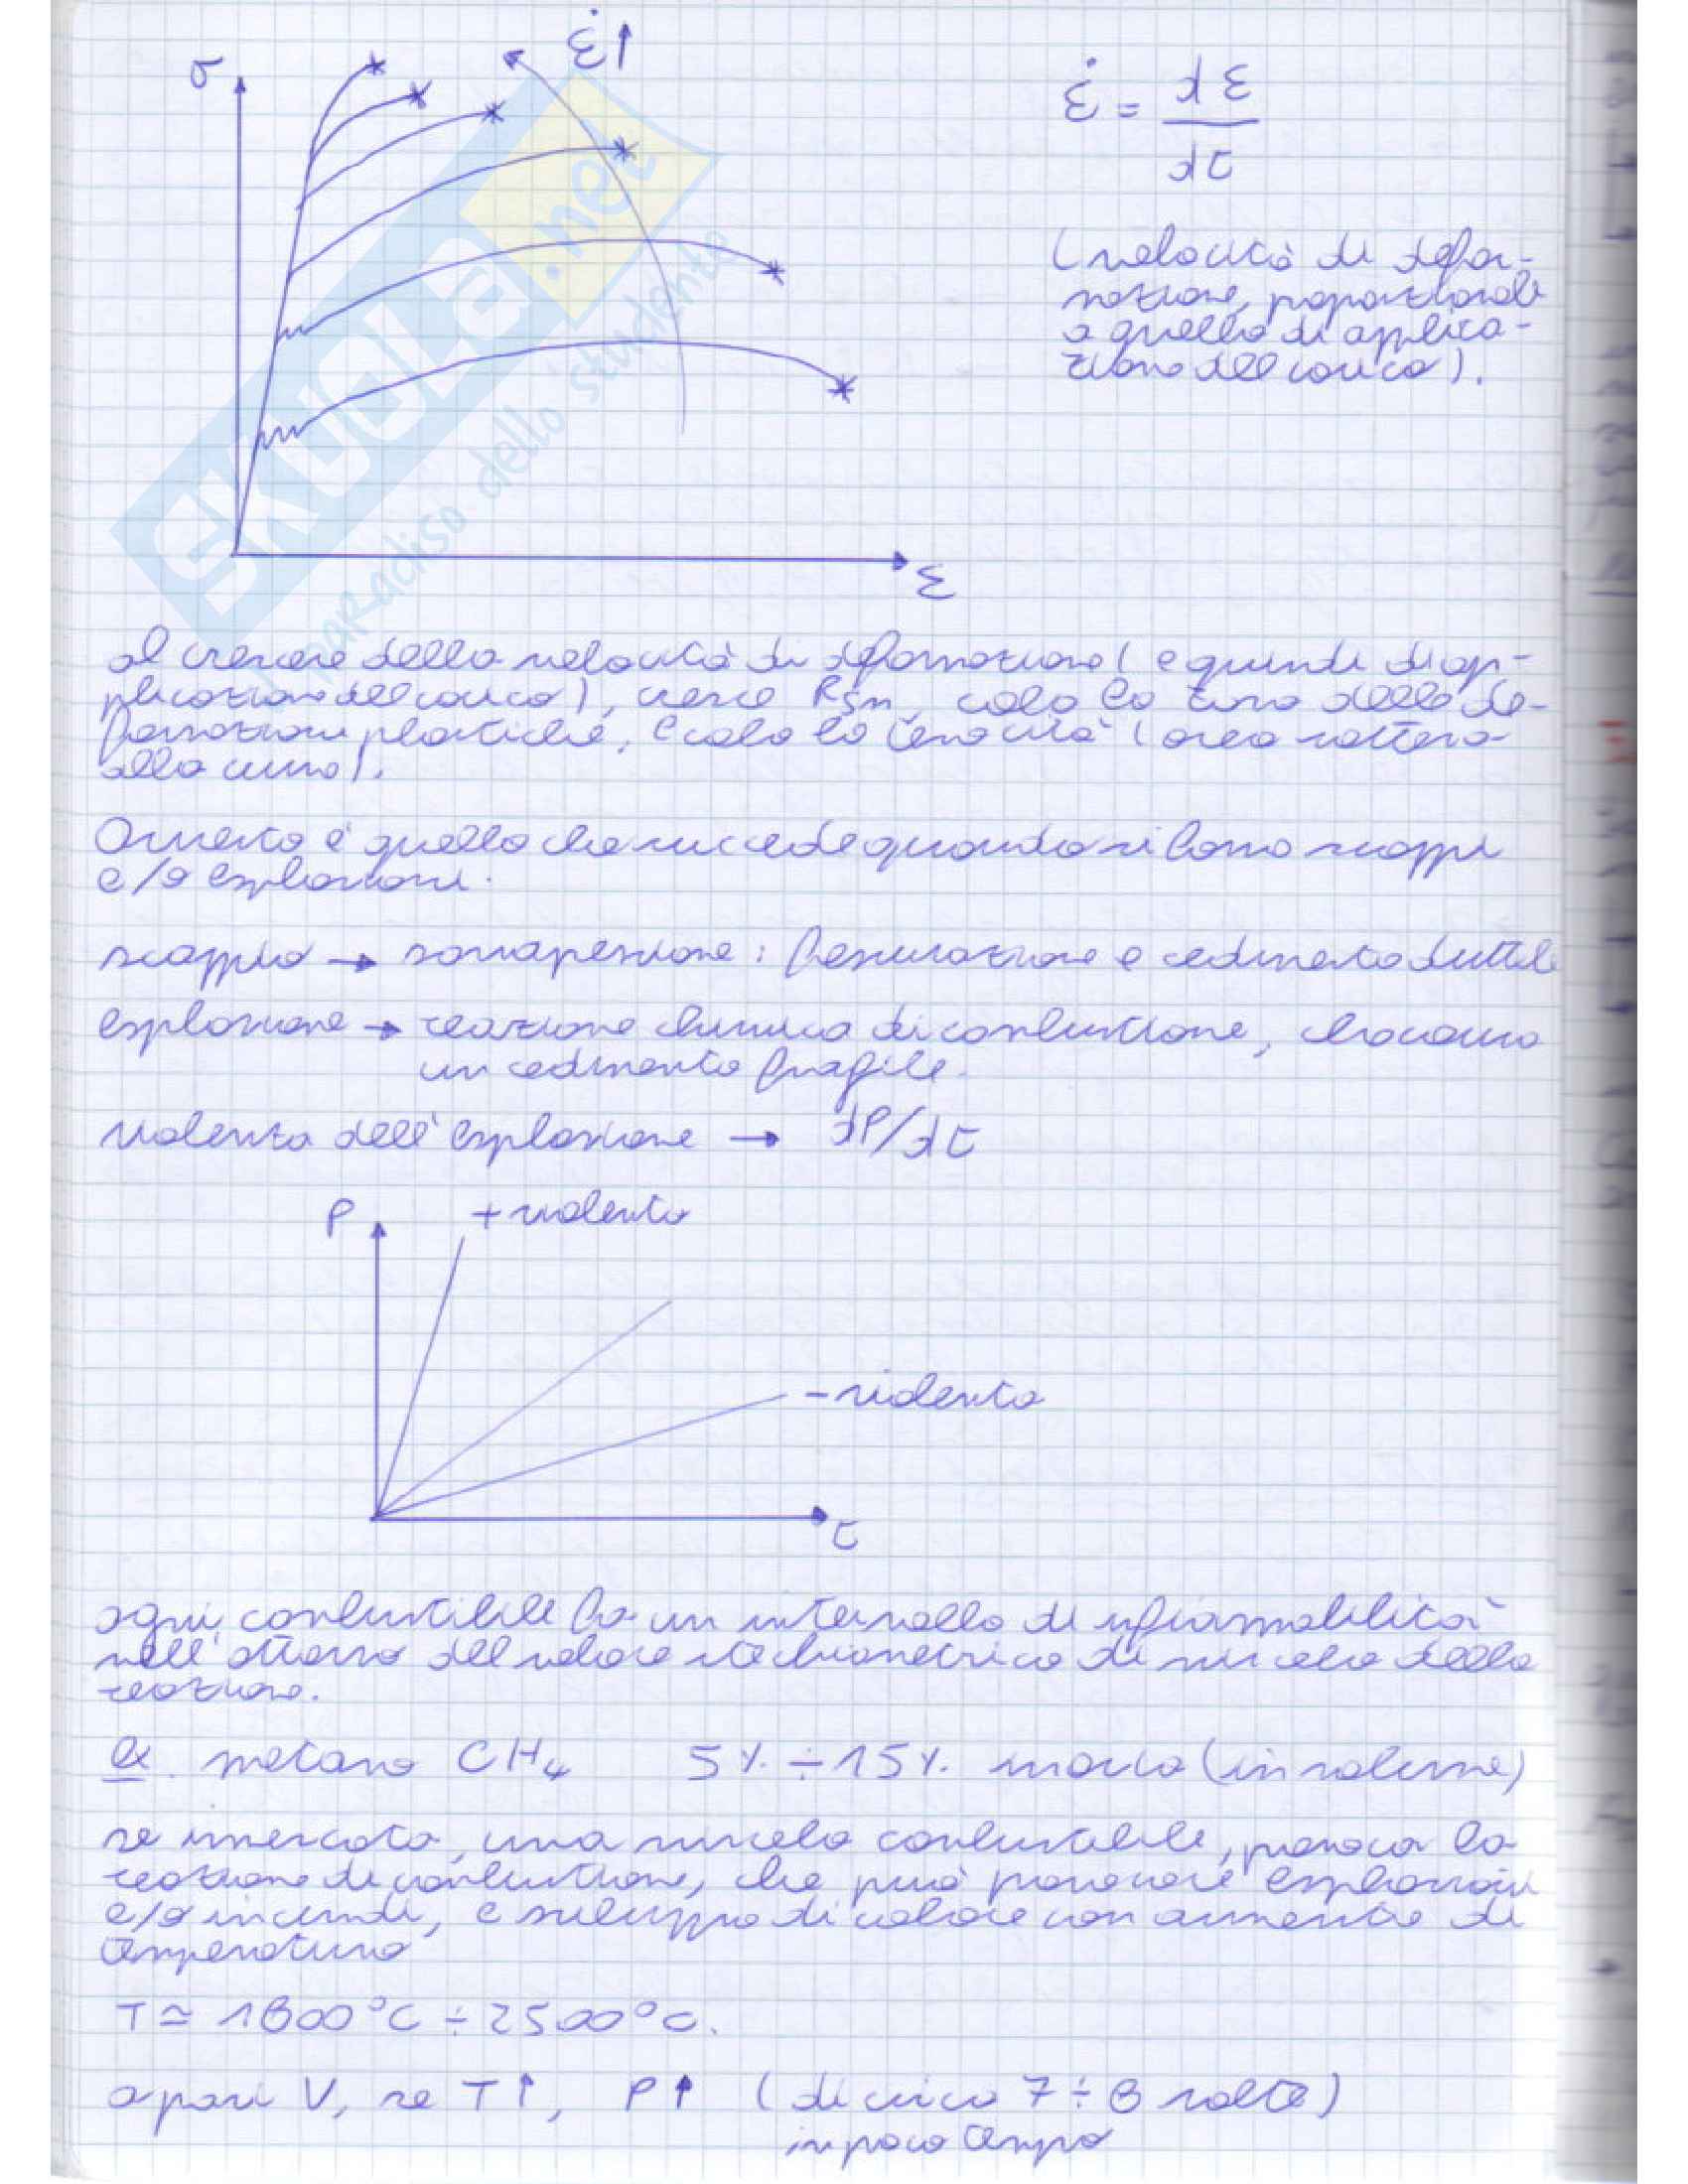 σ
ε̇↑
ε̇ = dε
dt
(velocità di defor-
mazione, proporzionale
a quella di applica-
zione del carico).
ε
SKUOLA.net
paradiso dello studente
al crescere della velocità di deformazione (e quindi di ap-
plicazione del carico), cresce Rsn, cala la zona delle de-
formazioni plastiche, e cala la tenacità (area sottesa
alla curva).
Questo è quello che succede quando si hanno scoppi
e/o esplosioni.
scoppio → sovrapressione: fessurazione e cedimento duttile
esplosione → reazione chimica di combustione, ho
un cedimento fragile.
violenza dell'esplosione → dP/dt
P
+ violento
- violento
t
ogni combustibile ha un intervallo di infiammabilità
nell'attorno del valore stechiometrico di miscela della
reazione.
ex. metano CH4 5% ÷ 15% in aria (in volume)
se innescata, una miscela combustibile, provoca la
reazione di combustione, che può provocare esplosioni
e/o incendi, e sviluppo di calore con aumento di
temperatura
T ≃ 1800°C ÷ 2500°C.
a pari V, se T↑, P↑ (di circa 7 ÷ 8 volte)
in poco tempo